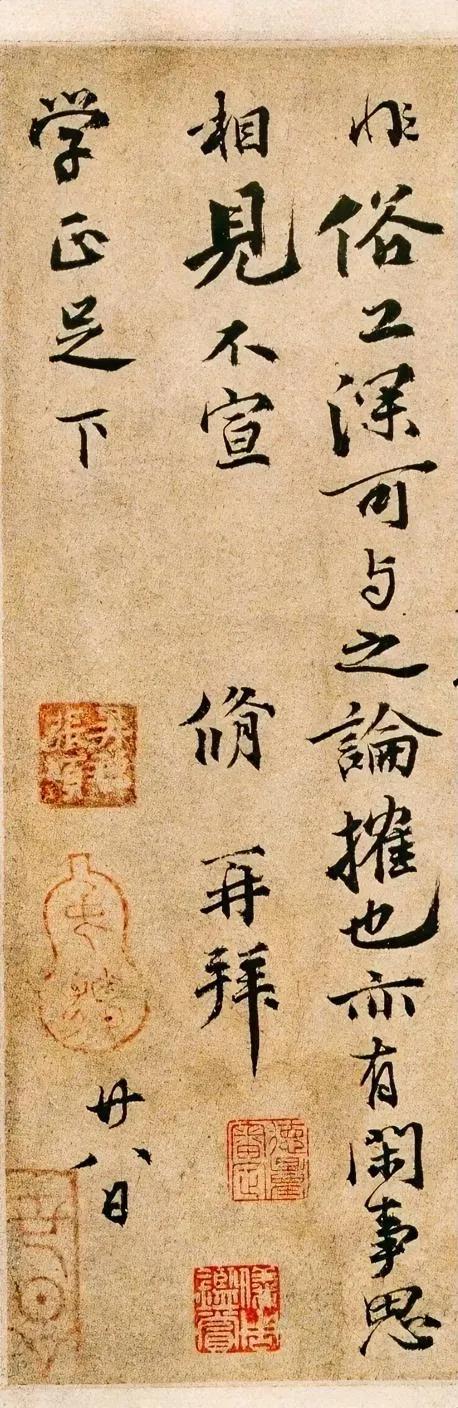 非俗工深可与之論搉也亦有閑事思
相見不宣 脩再拜
学正足下 廿八日